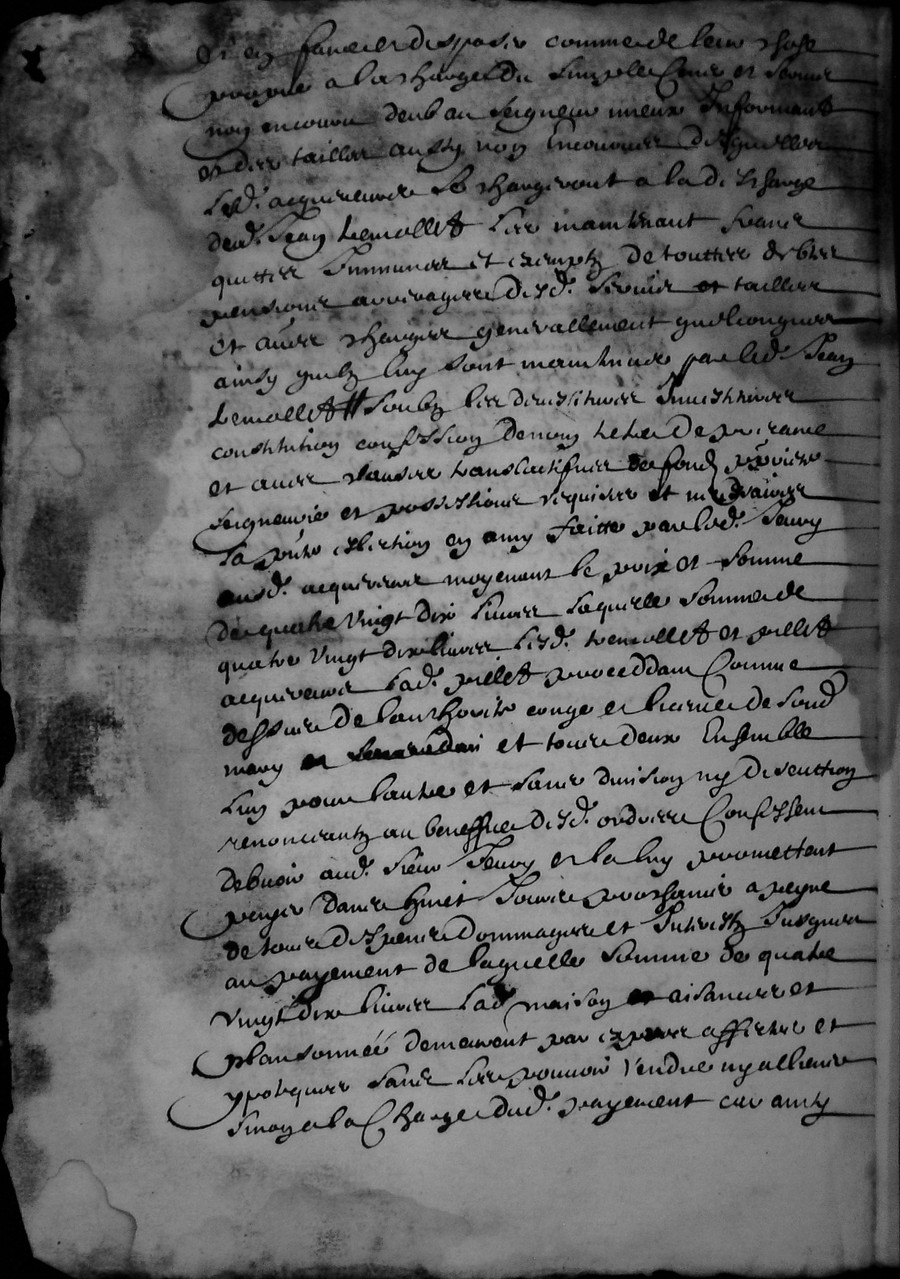 et en faire et disposer comme de leur chose
propre a la charge du simple cens et servis
non encouru deub au seigneur mieux informant
et des tailles aussy non encourues desquelles
lesd. acquereurs se chargeront a la descharge
dud. Jean Hemollet les maintenant francs
quittes immunes et exemptz de touttes debtes
pensions arrerages desd. servis et tailles
et aues charges generallement quelconques
ainsy quelz luy sont maintenues par led. Jean
Hemollet soubz les devestitures investitures
constitution confession de nom tiltre de precaire
et aues clauses translatifves de fond
seigneurie et possessions requises et necessaires
la pnte en amy faitte par led. Jean
ausd. acquereurs moyenant le prix et somme
de quatre vingt dix livres laquelle somme de
quatre vingt dix livres lesd. Hemollet et pillet
acquereurs lad. pillet proceddant comme
dessus de lauthorite conge et licence de sond
mary et tous deux ensemble
lun pour lautre et sans division ny discution
renonceantz au beneffice desd. ordres confessent
debvoir aud. sieur Jean et la luy promettent
payer dans huict jours prochains a peyne
de tous despens dommages et interestz jusques
au payement de laquelle somme de quatre
vingt dix livres lad. maison et aisances et
plansonnée demeurent par expres affectes et
ypotequees sans les pouvoir vendre ny alliener
sinon a la charge dud. payement car ainsy